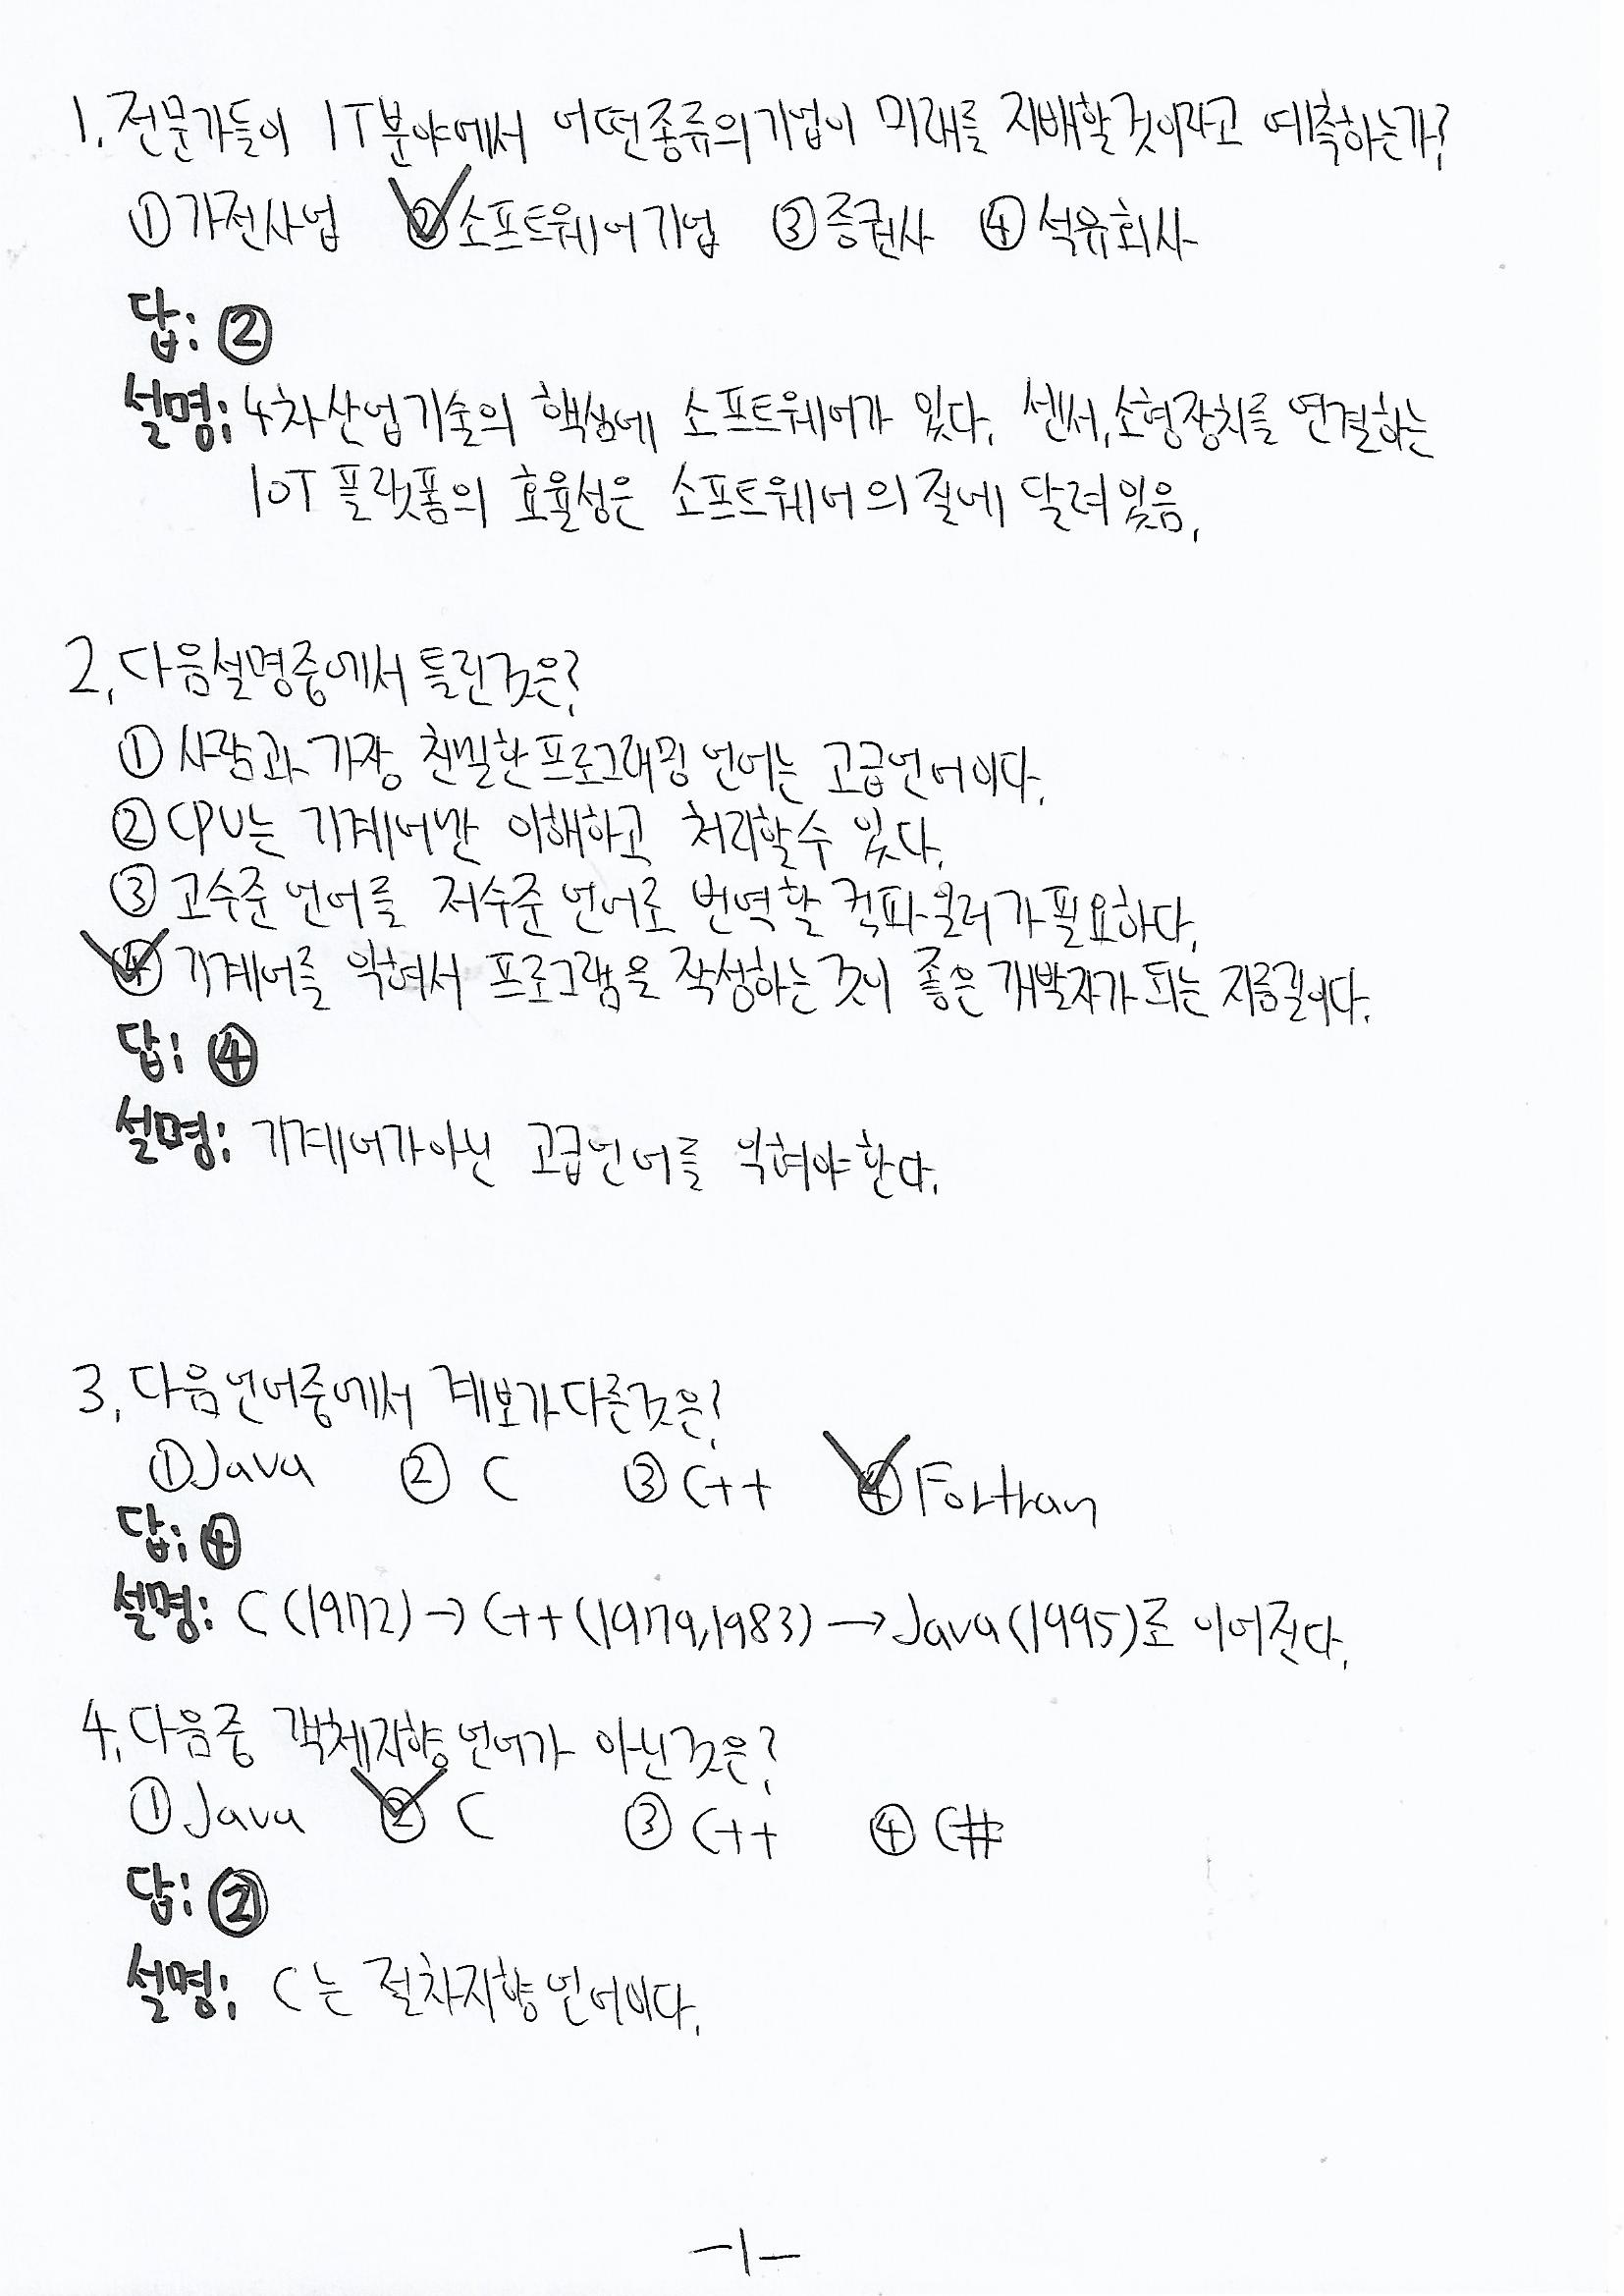 1. 전문가들이 IT분야에서 어떤종류의기업이 미래를 지배할것이라고 예측하는가?
①가전사업 ②소프트웨어기업 ③증권사 ④석유회사
답: ②
설명: 4차산업기술의 핵심에 소프트웨어가 있다. 센서,소형장치를 연결하는
IoT 플랫폼의 효율성은 소프트웨어의 질에 달려있음.
2. 다음설명중에서 틀린것은?
① 사람과 가장 친밀한프로그래밍 언어는 고급언어이다.
② CPU는 기계어만 이해하고 처리할수 있다.
③ 고수준 언어를 저수준 언어로 번역할 컴파일러가 필요하다.
④ 기계어를 익혀서 프로그램을 작성하는것이 좋은 개발자가 되는 지름길이다.
답: ④
설명: 기계어가아닌 고급언어를 익혀야한다.
3. 다음언어중에서 계보가다른것은?
①Java ② C ③ C++ ④ Fortran
답: ④
설명: C (1972) → C++ (1979,1983) → Java (1995)로 이어진다.
4. 다음중 객체지향언어가 아닌것은?
① Java ② C ③ C++ ④ C#
답: ②
설명: C는 절차지향언어이다.
-1-